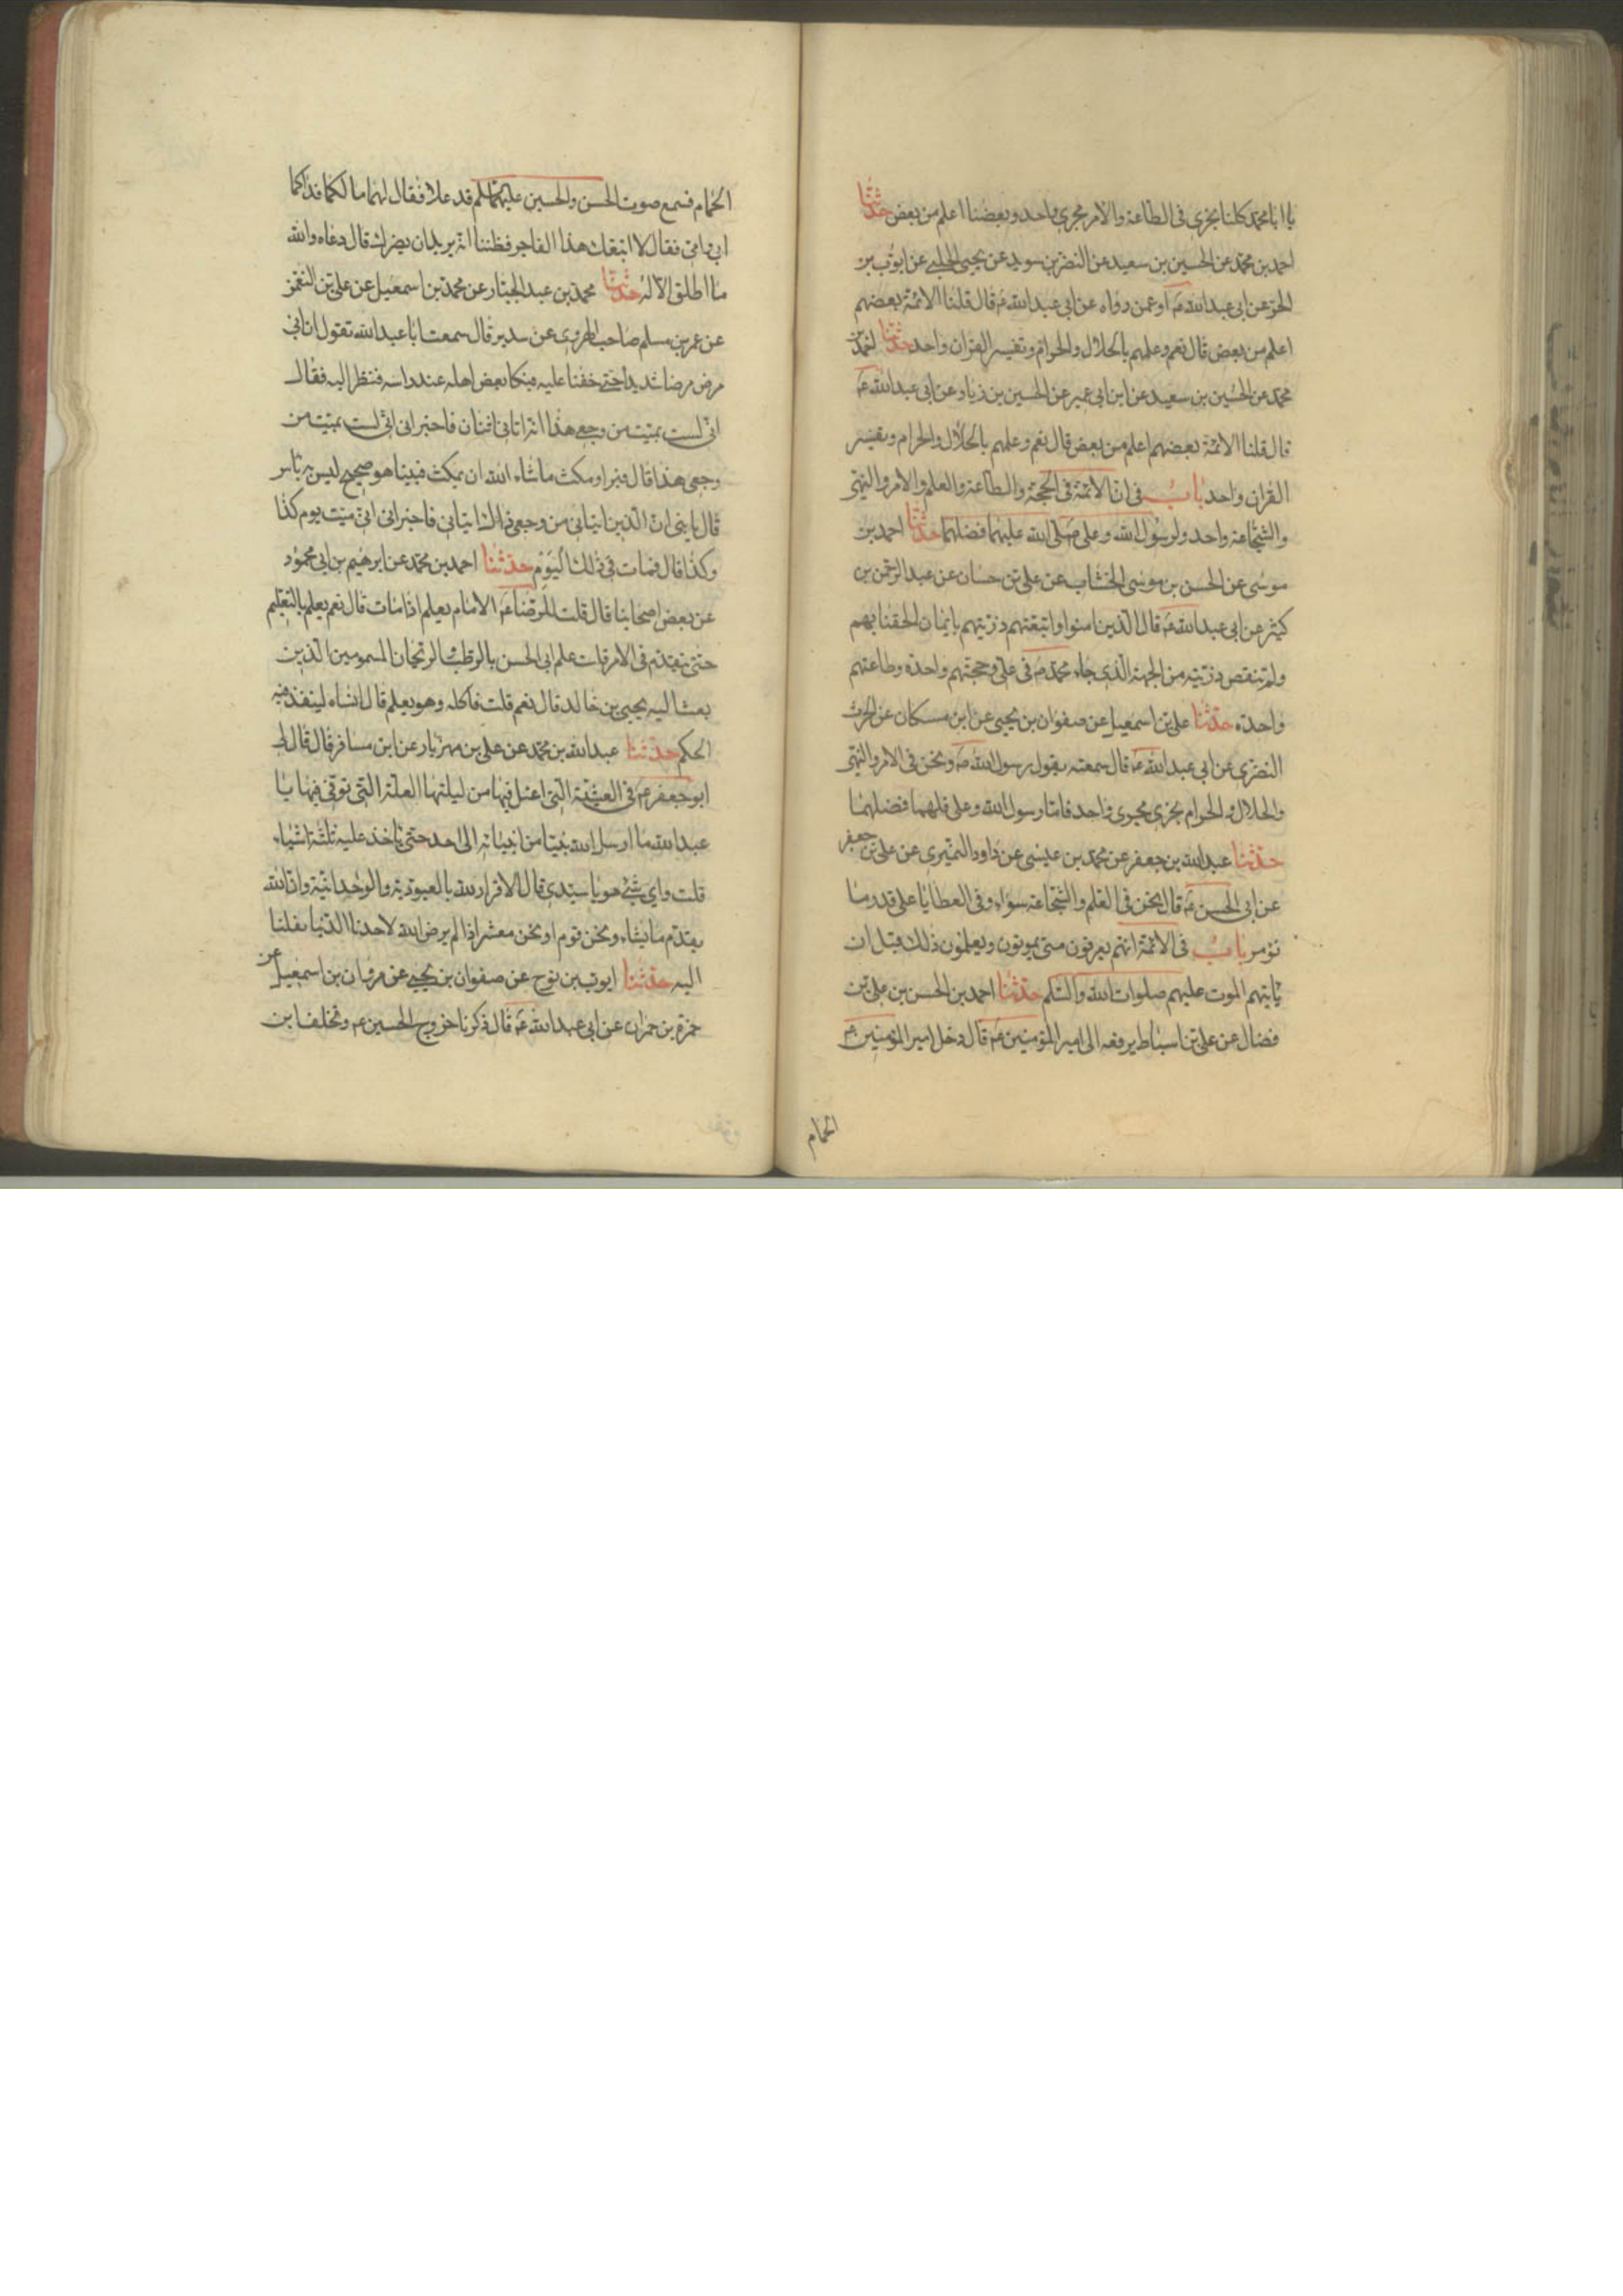 يا ابا محمد كلنا يجرى فى الطاعة والامر مجرى واحد وبعضنا اعلم من بعض حدثنا
احمد بن محمد عن الحسين بن سعيد عن النضر بن سويد عن يحيى الحلبى عن ايوب بن
الحر عن ابى عبد الله ع او عمن رواه عن ابى عبد الله ع قال قلنا الائمة بعضهم
اعلم من بعض قال نعم وعلمهم بالحلال والحرام وتفسير القران واحد حدثنا احمد بن
محمد عن الحسين بن سعيد عن ابن ابى عمير عن الحسين بن زياد عن ابى عبد الله ع
قال قلنا الائمة بعضهم اعلم من بعض قال نعم وعلمهم بالحلال والحرام وتفسير
القران واحد باب فى ان الائمة فى الحجة والطاعة والعلم والامر والنهى
والشجاعة واحد ولرسول الله وعلى صلى الله عليهما فضلهما حدثنا احمد بن
موسى عن الحسن بن موسى الخشاب عن على بن حسان عن عبد الرحمن بن
كثير عن ابى عبد الله ع قال الذين امنوا واتبعتهم ذريتهم بايمان الحقنا بهم
ولم تنقص ذريته من الجهة الذى جاء محمد ص فى على وحجتهم واحدة وطاعتهم
واحدة حدثنا على بن اسمعيل عن صفوان بن يحيى عن ابن مسكان عن الحرث
النضرى عن ابى عبد الله ع قال سمعته يقول رسول الله ص ونحن فى الامر والنهى
والحلال والحرام يجرى مجرى واحد فاما رسول الله وعلى فلهما فضلهما
حدثنا عبد الله بن جعفر عن محمد بن عيسى عن داود النميرى عن على بن جعفر
عن ابى الحسن ع قال نحن فى العلم والشجاعة سواء وفى العطايا على قدر ما
نؤمر باب فى الائمة انهم يعرفون متى يموتون ويعلمون ذلك قبل ان
ياتيهم الموت عليهم صلوات الله والسلم حدثنا احمد بن الحسن بن على بن
فضال عن على بن اسباط يرفعه الى امير المؤمنين ع قال دخل امير المؤمنين ع
الحمام
الحمام فسمع صوت الحسن والحسين عليهما السلم قد علا فقال لهما ما لكما فداكما
ابى وامى فقالا اتبعك هذا الفاجر فظننا انه يريد ان يضرك قال دعاه والله
ما اطلق الا له حدثنا محمد بن عبد الجبار عن محمد بن اسمعيل عن على بن النعمن
عن عمر بن مسلم صاحب الهروى عن سدير قال سمعت ابا عبد الله تقول ان ابى
مرض مرضا شديدا حتى خفنا عليه فبكا بعض اهله عند راسه فنظر اليه فقال
انى لست بميت من وجعى هذا انه اتانى اثنان فاخبرانى انى لست بميت من
وجعى هذا قال فبرا ومكث ما شاء الله ان يمكث فبينا هو صحيح ليس به باس
قال يا بنى ان الذين اتيانى من وجعى ذلك اتيانى فاخبرانى انى ميت يوم كذا
وكذا قال فمات فى ذلك اليوم حدثنا احمد بن محمد عن ابرهيم بن ابى محمود
عن بعض اصحابنا قال قلت للرضا ع الامام يعلم اذا مات قال نعم يعلم بالتعليم
حتى يتقدم فى الامر قلت علم ابى الحسن بالرطب والريحان المسمومين الذين
بعث اليه يحيى بن خالد قال نعم قلت فاكله وهو يعلم قال انساه لينفذ فيه
الحكم حدثنا عبد الله بن محمد عن على بن مهزيار عن ابن مسافر قال قال لى
ابو جعفر ع فى العشية التى اعتل فيها من ليلتها العلة التى توفى فيها يا
عبد الله ما ارسل الله نبيا من انبيائه الى احد حتى ياخذ عليه ثلثة اشياء
قلت واى شئ هو يا سيدى قال الاقرار لله بالعبودية والوحدانية وان الله
يقدم ما يشاء ونحن قوم او نحن معشر اذا لم يرض الله لاحدنا الدنيا نقلنا
اليه حدثنا ايوب بن نوح عن صفوان بن يحيى عن مروان بن اسمعيل عن
حمزة بن حمران عن ابى عبد الله ع قال ذكرنا خروج الحسين ع وتخلف ابن